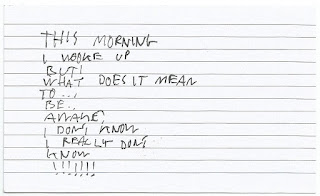 THIS MORNING
I WOKE UP
BUT!
WHAT DOES IT MEAN
TO...
BE..
AWAKE;
I DONT KNOW
I REALLY DONT
KNOW
!!!!!!!